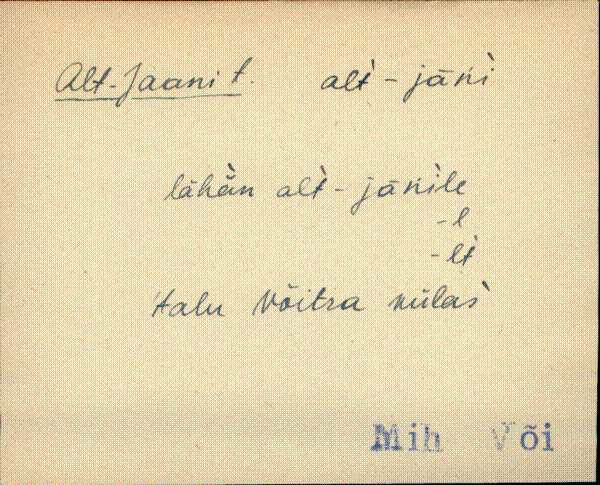 Alt-Jaani t. alt̀ - jāǹi
lähä̀n alt̀ - jāǹile
-l
-lt̀
talu Võitra külas̀
Mih Või